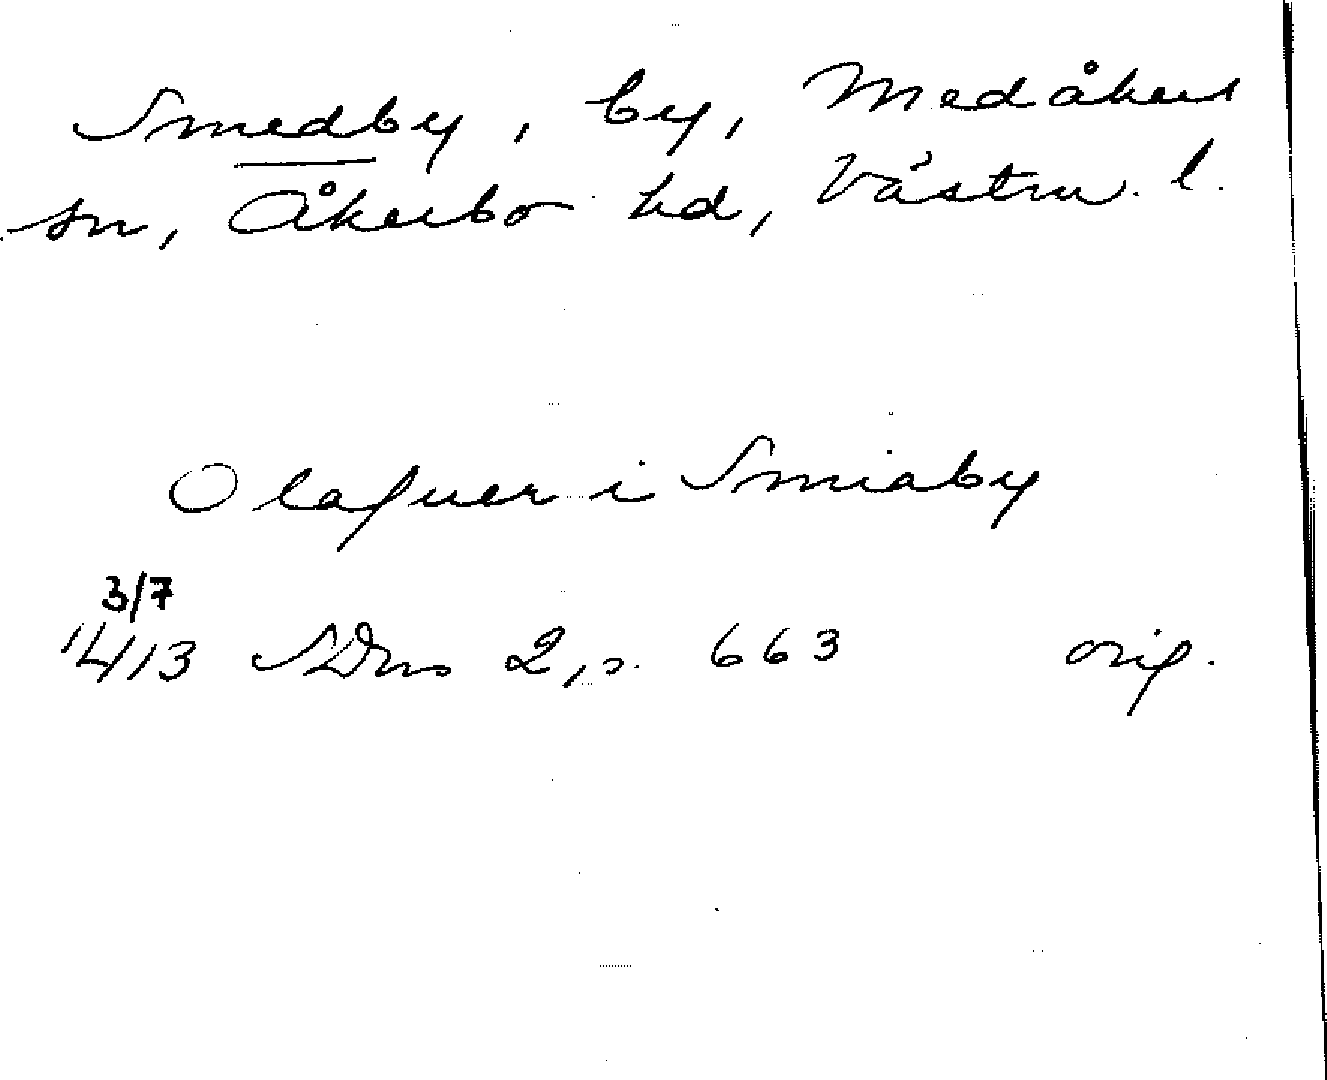 Smedby, by, Medåkers
sn, Åkerbo hd, Västm. l.
Olafuer i Smiaby
3/7
1413 SDns 2, s. 663 orig.